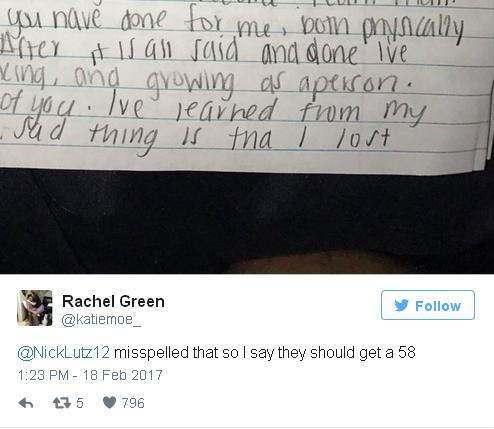 you have done for me, both physically
After it is all said and done Ive
king, and growing as a person.
of you. Ive learned from my
sad thing is tha I lost
Rachel Green
@katiemoe_
Follow
@NickLutz12 misspelled that so I say they should get a 58
1:23 PM - 18 Feb 2017
5
796